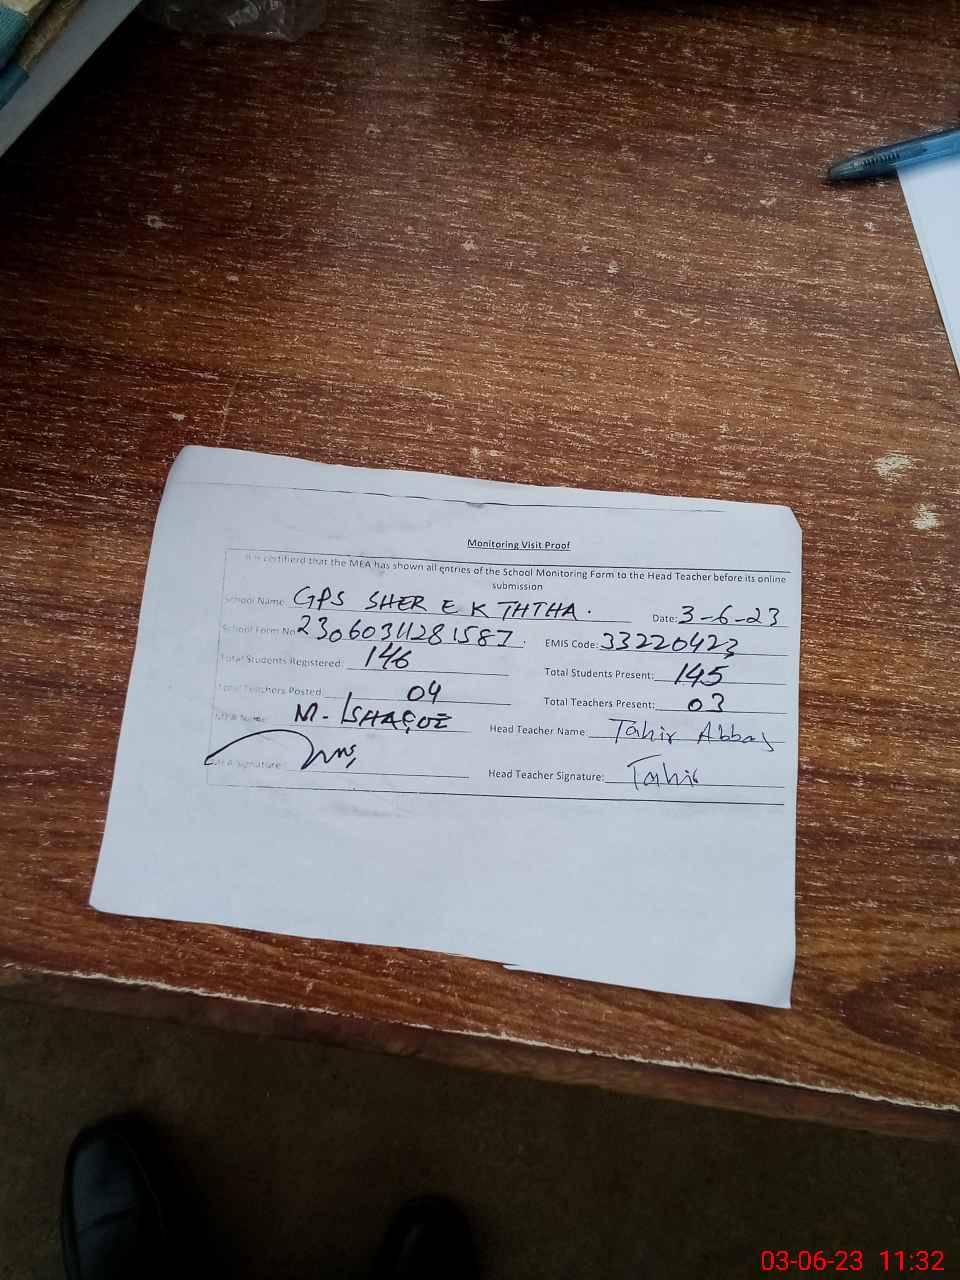 Monitoring Visit Proof
It is certifierd that the MEA has shown all entries of the School Monitoring Form to the Head Teacher before its online
submission
School Name: GPS SHER E K THTHA. Date: 3-6-23
School Form No 23060311281587. EMIS Code: 33220423
Total Students Registered: 146 Total Students Present: 145
Total Teachers Posted: 04 Total Teachers Present: 03
MEA Name: M. ISHAQUE Head Teacher Name: Tahir Abbas
MEA Signature: Head Teacher Signature: Tahir
03-06-23 11:32